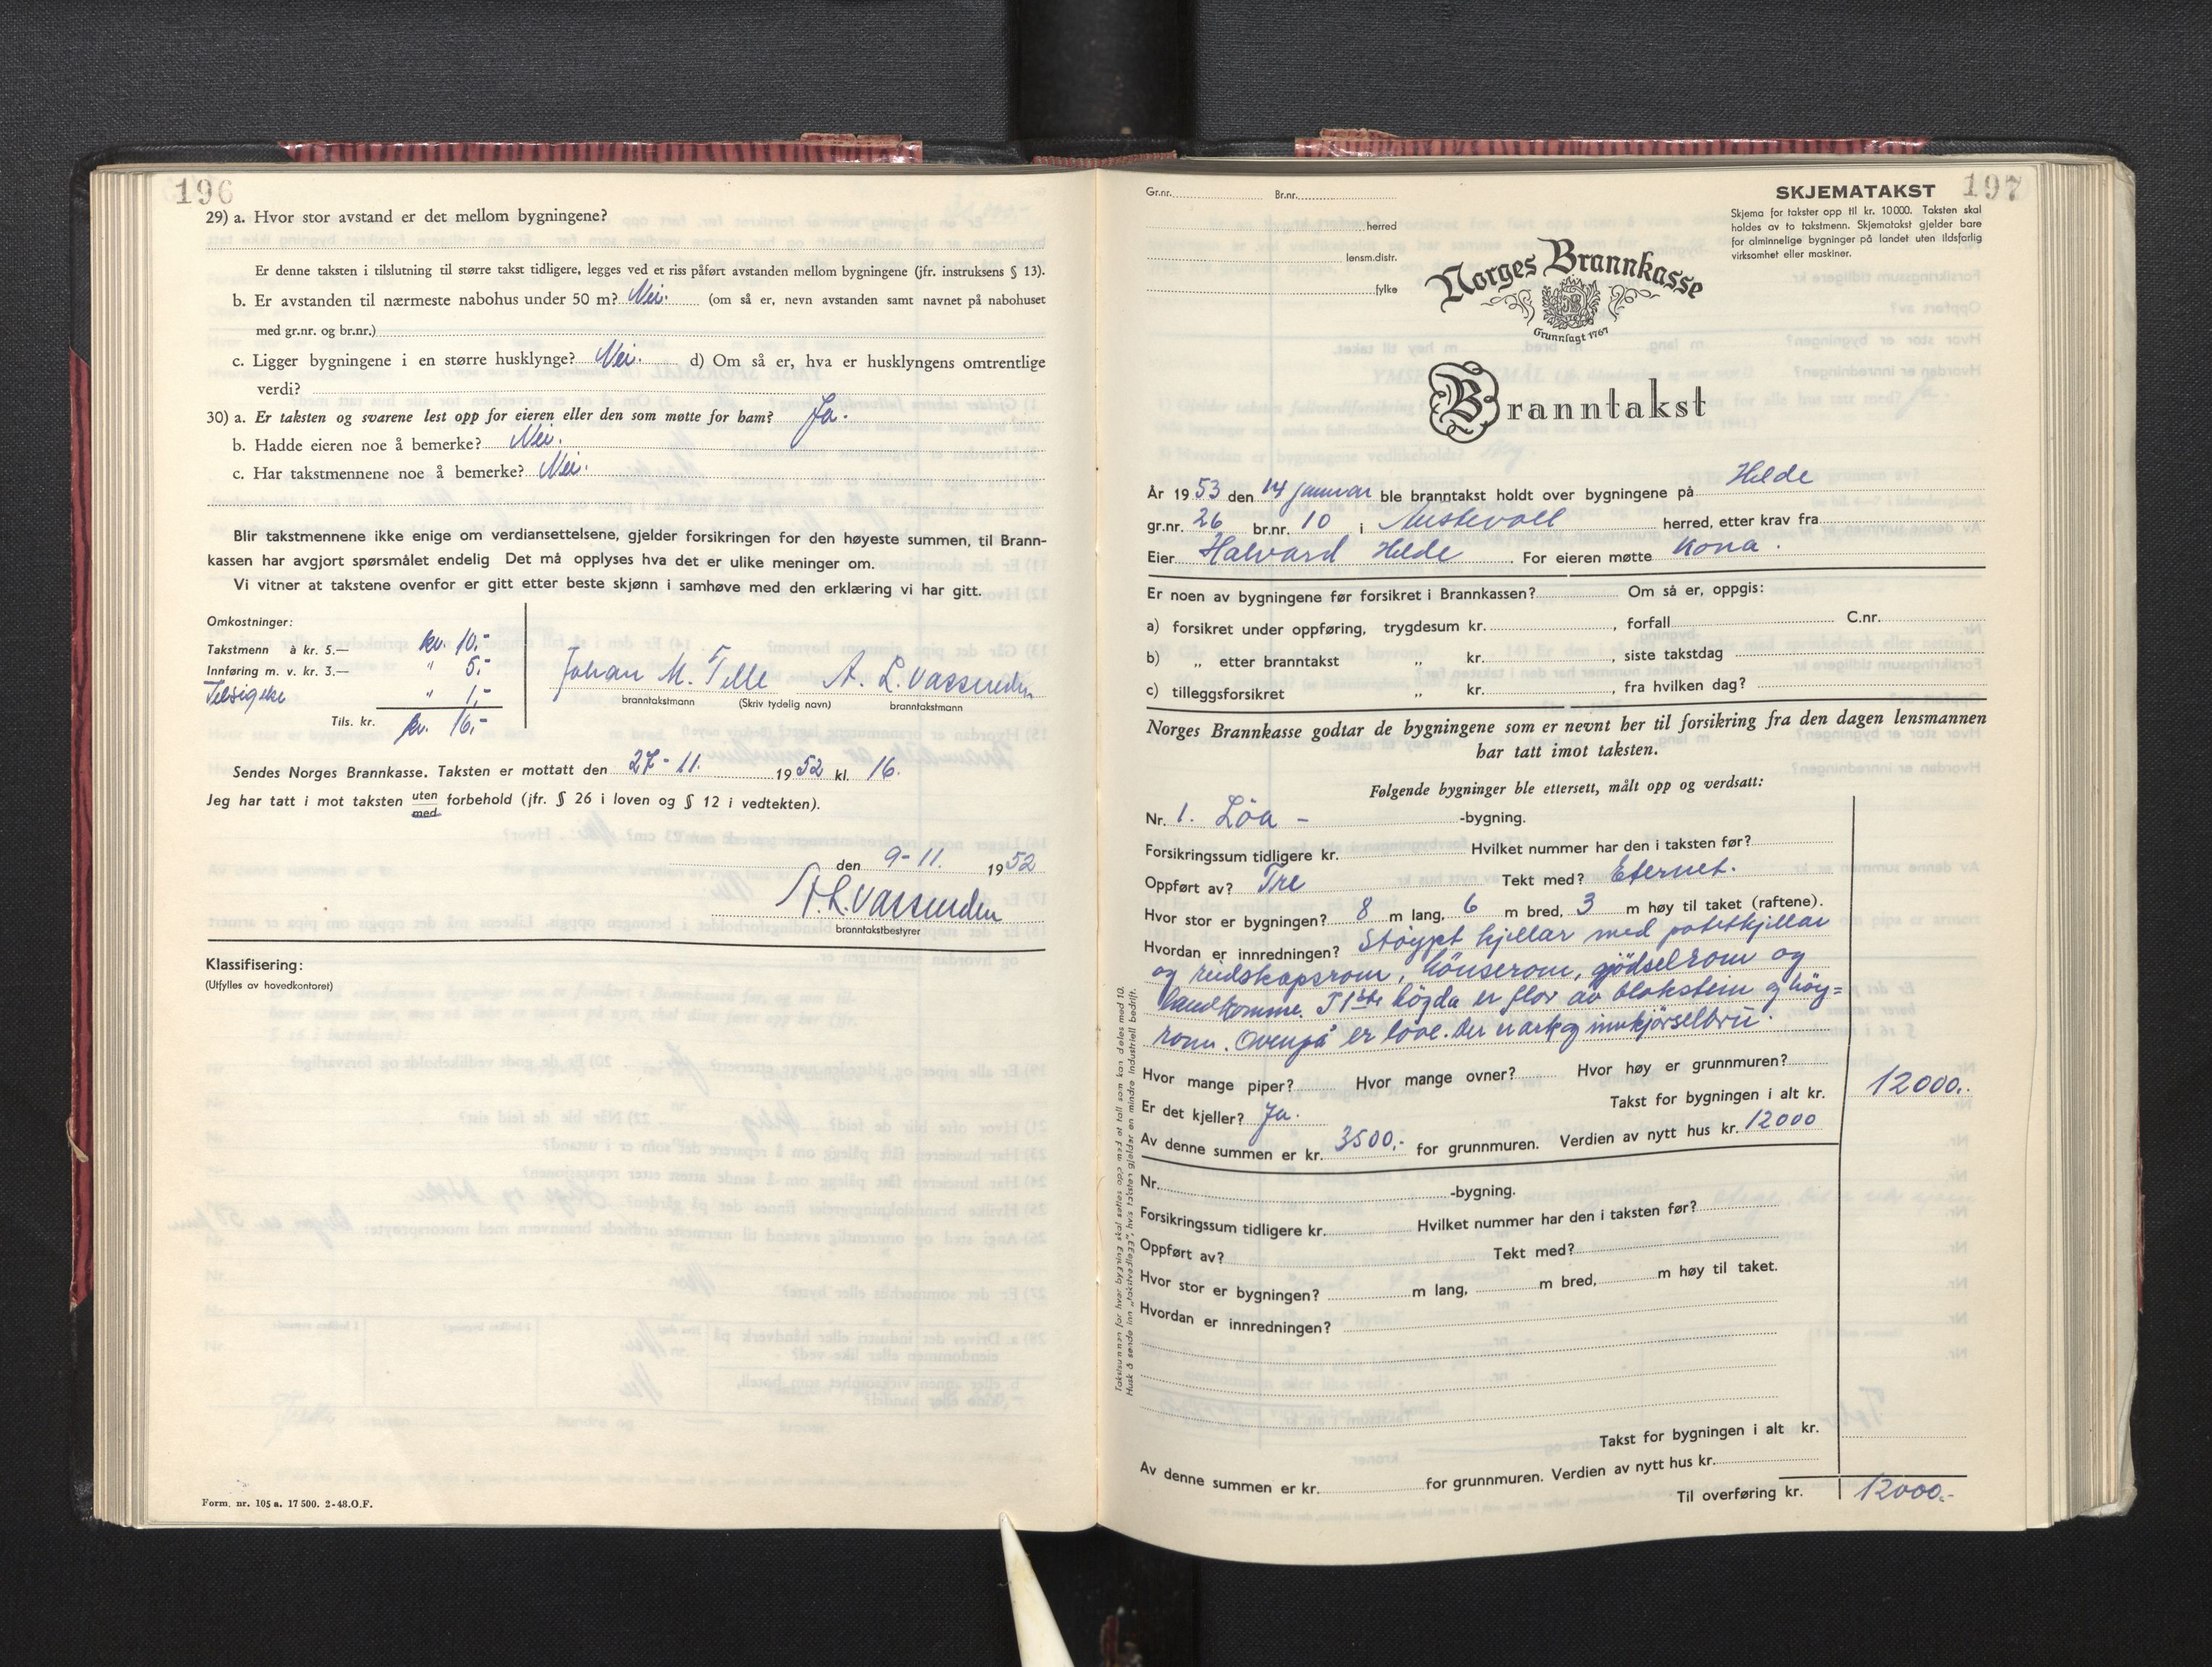 196
29) a. Hvor stor avstand er det mellom bygningene?
Er denne taksten i tilslutning til større takst tidligere, legges ved et riss påført avstanden mellom bygningene (jfr. instruksens § 13).
b. Er avstanden til nærmeste nabohus under 50 m? Nei. (om så er, nevn avstanden samt navnet på nabohuset
med gr.nr. og br.nr.)
c. Ligger bygningene i en større husklynge? Nei. d) Om så er, hva er husklyngens omtrentlige
verdi?
30) a. Er taksten og svarene lest opp for eieren eller den som møtte for ham? Ja.
b. Hadde eieren noe å bemerke? Nei.
c. Har takstmennene noe å bemerke? Nei.
Blir takstmennene ikke enige om verdiansettelsene, gjelder forsikringen for den høyeste summen, til Brann-
kassen har avgjort spørsmålet endelig Det må opplyses hva det er ulike meninger om.
Vi vitner at takstene ovenfor er gitt etter beste skjønn i samhøve med den erklæring vi har gitt.
Omkostninger:
Takstmenn à kr. 5.— kr. 10,-
Innføring m. v. kr. 3.— " 5,-
" 1,-
Tils. kr. kr. 16,-
Johan M. Telle A. L. Vassenden
branntakstmann (Skriv tydelig navn) branntakstmann
Sendes Norges Brannkasse. Taksten er mottatt den 27-11. 1952 kl. 16.
Jeg har tatt i mot taksten uten med forbehold (jfr. § 26 i loven og § 12 i vedtekten).
den 9-11. 1952
A. L. Vassenden
branntakstbestyrer
Klassifisering:
(Utfylles av hovedkontoret)
Form. nr. 105 a. 17 500. 2-48. O.F.
Gr.nr. Br.nr.
herred
lensm.distr.
fylke
SKJEMATAKST 197
Skjema for takster opp til kr. 10000. Taksten skal
holdes av to takstmenn. Skjematakst gjelder bare
for alminnelige bygninger på landet uten ildsfarlig
virksomhet eller maskiner.
Norges Brannkasse
Grunnlagt 1767
Branntakst
År 1953 den 14 januar ble branntakst holdt over bygningene på Hilde
gr.nr. 26 br.nr. 10 i Austevoll herred, etter krav fra
Eier Halvard Hilde. For eieren møtte Kona.
Er noen av bygningene før forsikret i Brannkassen? Om så er, oppgis:
a) forsikret under oppføring, trygdesum kr. , forfall C.nr.
b) „ etter branntakst „ kr. , siste takstdag
c) tilleggsforsikret „ kr. , fra hvilken dag?
Norges Brannkasse godtar de bygningene som er nevnt her til forsikring fra den dagen lensmannen
har tatt imot taksten.
Følgende bygninger ble ettersett, målt opp og verdsatt:
Nr. 1. Löa - -bygning.
Forsikringssum tidligere kr. Hvilket nummer har den i taksten før?
Oppført av? Tre Tekt med? Eternet.
Hvor stor er bygningen? 8 m lang, 6 m bred, 3 m høy til taket (raftene).
Hvordan er innredningen? Stöypt kjellar med potetkjellar
og reidskapsrom, hönserom, gjödselrom og
landkomme. I 1ste högda er flor av blokstein og höy=
rom. Ovenpå er löve. Der er ark og innkjörselbru.
Hvor mange piper? Hvor mange ovner? Hvor høy er grunnmuren?
Er det kjeller? Ja. Takst for bygningen i alt kr. 12000.
Av denne summen er kr. 3500,- for grunnmuren. Verdien av nytt hus kr. 12000
Nr. -bygning.
Forsikringssum tidligere kr. Hvilket nummer har den i taksten før?
Oppført av? Tekt med?
Hvor stor er bygningen? m lang, m bred, m høy til taket.
Hvordan er innredningen?
Takst for bygningen i alt kr.
Av denne summen er kr. for grunnmuren. Verdien av nytt hus kr.
Til overføring kr. 12000.-
Takstsummen for hver bygning skal settes opp med et tall som kan deles med 10.
Husk å sende inn „Takstvedlegg", hvis taksten gjelder en mindre industriell bedrift.